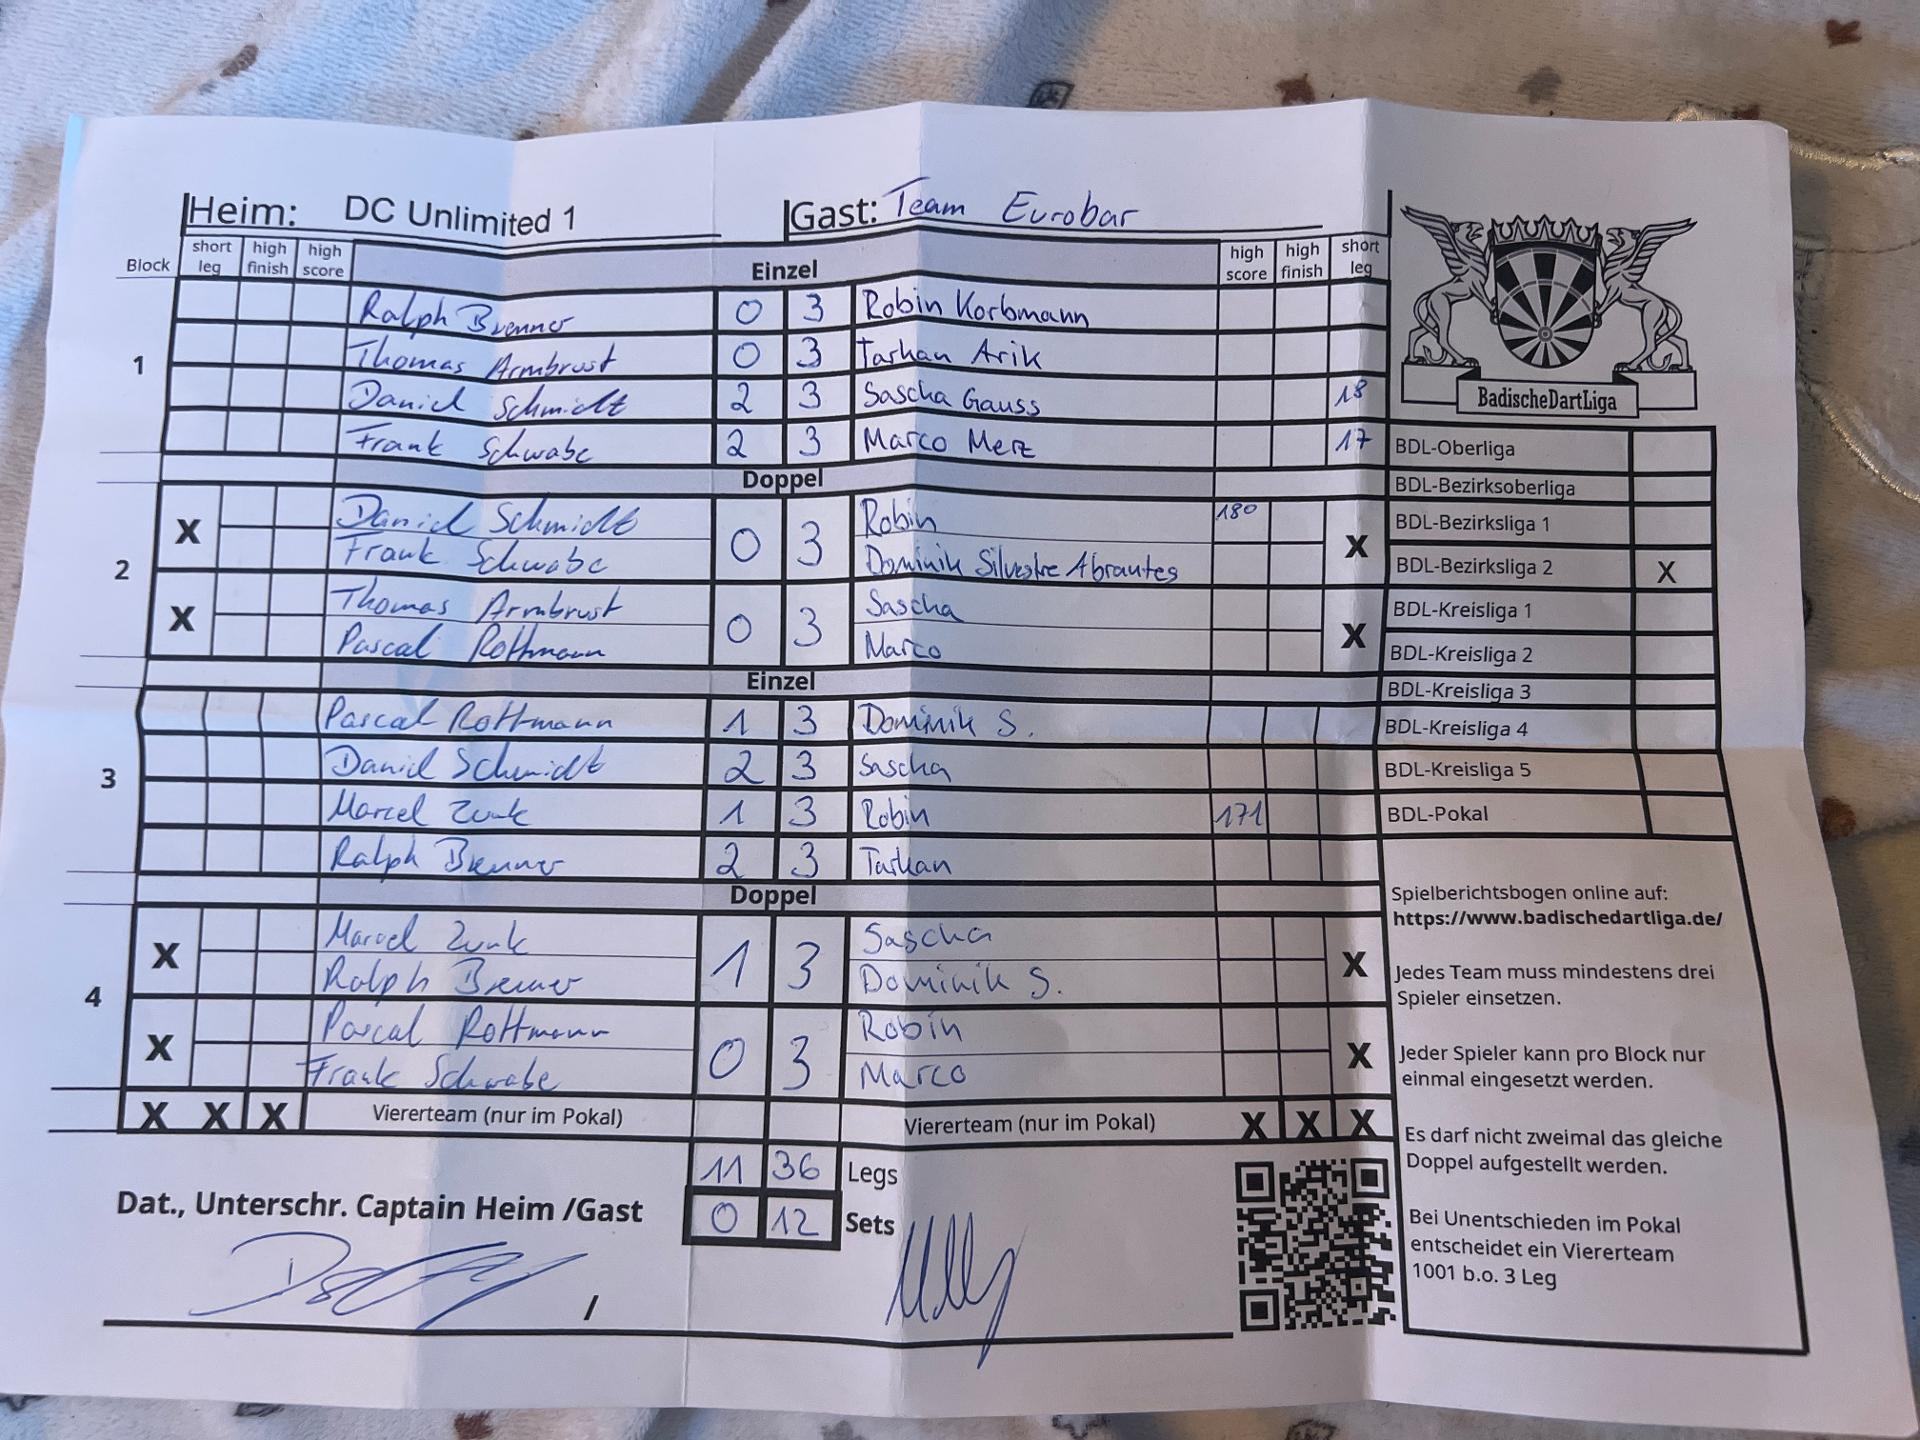 Heim: DC Unlimited 1 Gast: Team Eurobar
Block short leg high finish high score Einzel high score high finish short leg
1
Ralph Brenner 0 3 Robin Korbmann
Thomas Armbrust 0 3 Tarkan Arik
Daniel Schmidt 2 3 Sascha Gauss 18
Frank Schwabe 2 3 Marco Merz 17
Doppel
2
X Daniel Schmidt 0 3 Robin 180 X
Frank Schwabe Dominik Silvestre Abrantes
X Thomas Armbrust 0 3 Sascha X
Pascal Rottmann Marco
Einzel
3
Pascal Rottmann 1 3 Dominik S.
Daniel Schmidt 2 3 Sascha
Marcel Zunk 1 3 Robin 171
Ralph Brenner 2 3 Tarkan
Doppel
4
X Marcel Zunk 1 3 Sascha X
Ralph Brenner Dominik S.
X Pascal Rottmann 0 3 Robin X
Frank Schwabe Marco
X X X Viererteam (nur im Pokal) Viererteam (nur im Pokal) X X X
11 36 Legs
0 12 Sets
Dat., Unterschr. Captain Heim /Gast
/
BadischeDartLiga
BDL-Oberliga
BDL-Bezirksoberliga
BDL-Bezirksliga 1
BDL-Bezirksliga 2 X
BDL-Kreisliga 1
BDL-Kreisliga 2
BDL-Kreisliga 3
BDL-Kreisliga 4
BDL-Kreisliga 5
BDL-Pokal
Spielberichtsbogen online auf:
https://www.badischedartliga.de/
Jedes Team muss mindestens drei
Spieler einsetzen.
Jeder Spieler kann pro Block nur
einmal eingesetzt werden.
Es darf nicht zweimal das gleiche
Doppel aufgestellt werden.
Bei Unentschieden im Pokal
entscheidet ein Viererteam
1001 b.o. 3 Leg